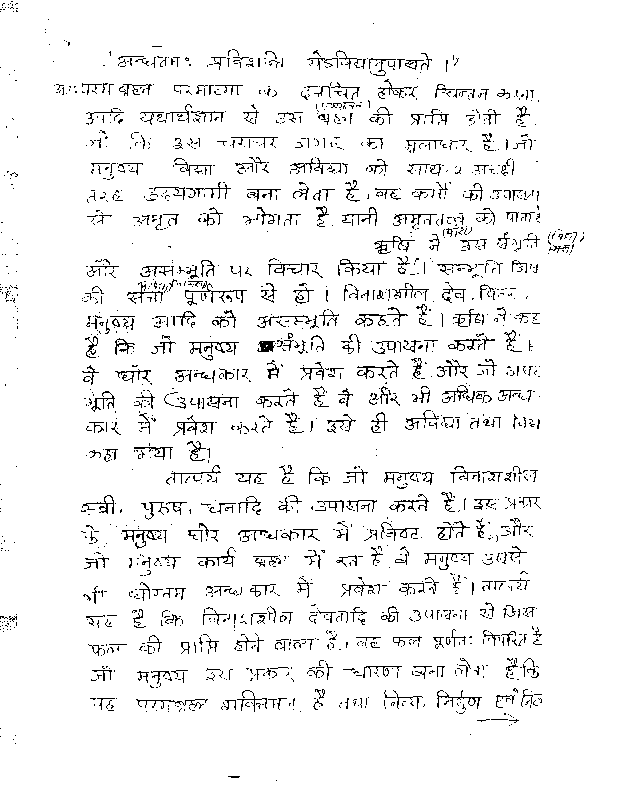 "अन्धतमः प्रविशन्ति येऽविद्यामुपासते ।"
परमब्रह्म परमात्मा के दत्तचित होकर चिन्तन करना
आदि यथार्थज्ञान से उस ब्रह्म की प्राप्ति होती है
जो कि इस चराचर जगत का मूलाधार है । जो
मनुष्य विद्या और अविद्या को साथ-२ अच्छी
तरह हृदयगामी बना लेता है, वह कर्मों की उपासना
से अमृत को भोगता है यानी अमृततत्व को
ऋषि ने उस संभूति
और असंम्भूति पर विचार किया है । सम्भूति जिस
की सत्ता पूर्णरूप से हो । विनाशशील, देव, पितर,
मनुष्य आदि को असम्भूति कहते है । ऋषि ने कह
है कि जो मनुष्य संभूति की उपासना करते है ।
वे घोर अन्धकार में प्रवेश करते है और जो असं
भूति की उपासना करते है वे और भी अधिक अन्ध-
कार में प्रवेश करते है । इसे ही अविद्या तथा विद्या
कहा गया है ।
तात्पर्य यह है कि जो मनुष्य विनाशशील
स्त्री, पुरुष, धनादि की उपासना करते है । इस प्रकार
के मनुष्य घोर अन्धकार में प्रविष्ट होते है, और
जो मनुष्य कार्य ब्रह्म में रत है वे मनुष्य उससे
भी घोरतम अन्धकार में प्रवेश करते है । तात्पर्य
यह है कि विनाशशील देवतादि की उपासना से जिस
फल की प्राप्ति होने वाला है । वह फल पूर्णतः विपरित है
जो मनुष्य इस प्रकार की धारणा बना लेता है कि
यह परमब्रह्म शक्तिमान है तथा नित्य, निर्गुण एवं